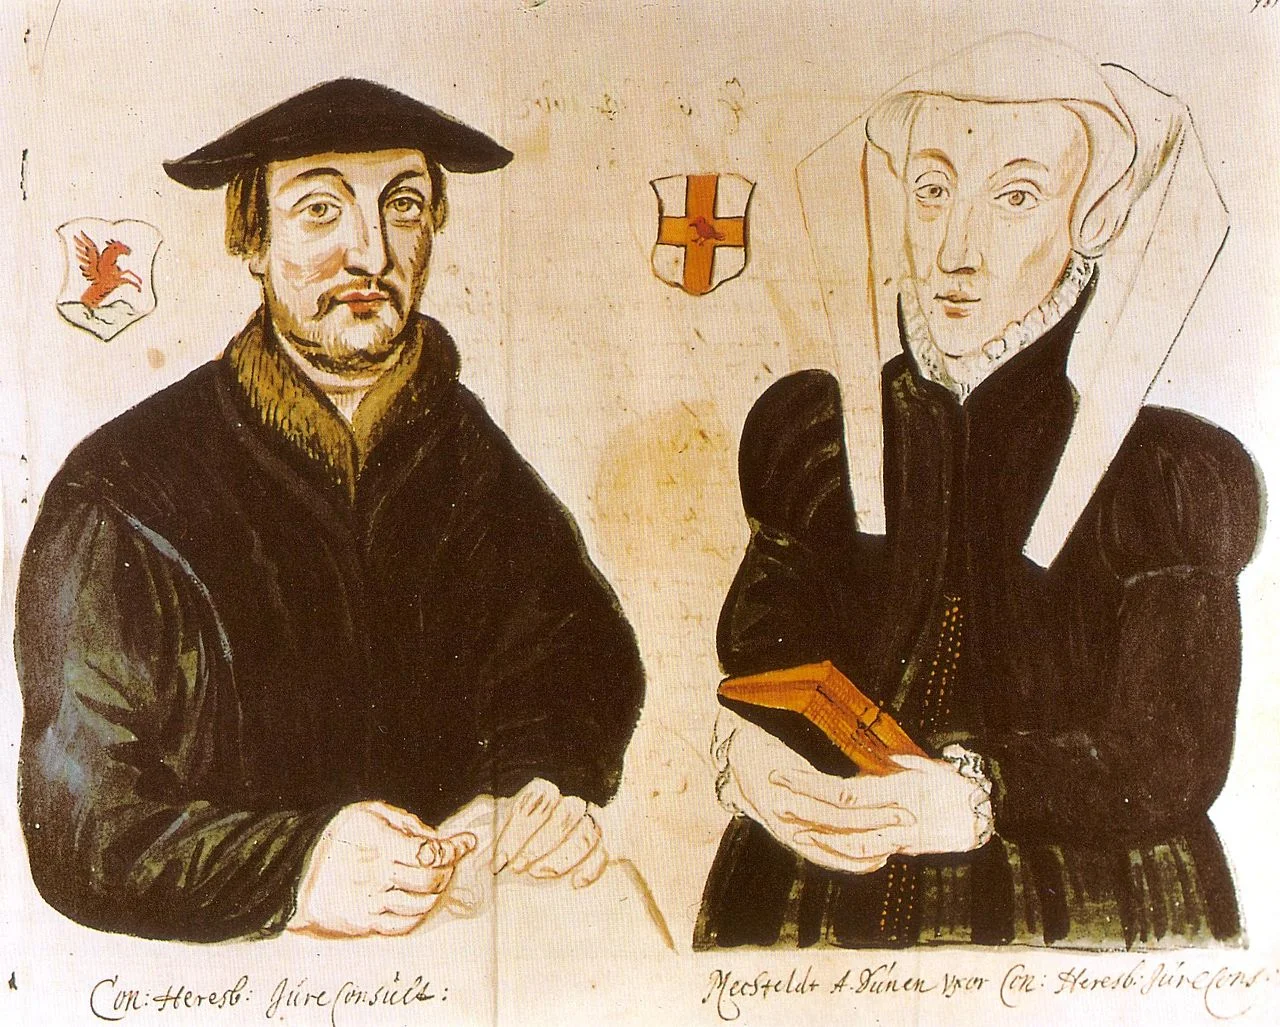 Con: Heresb: Júre Consúlt:
Mechteldt A. Dúnen vxor Con: Heresb: Júre Cons: